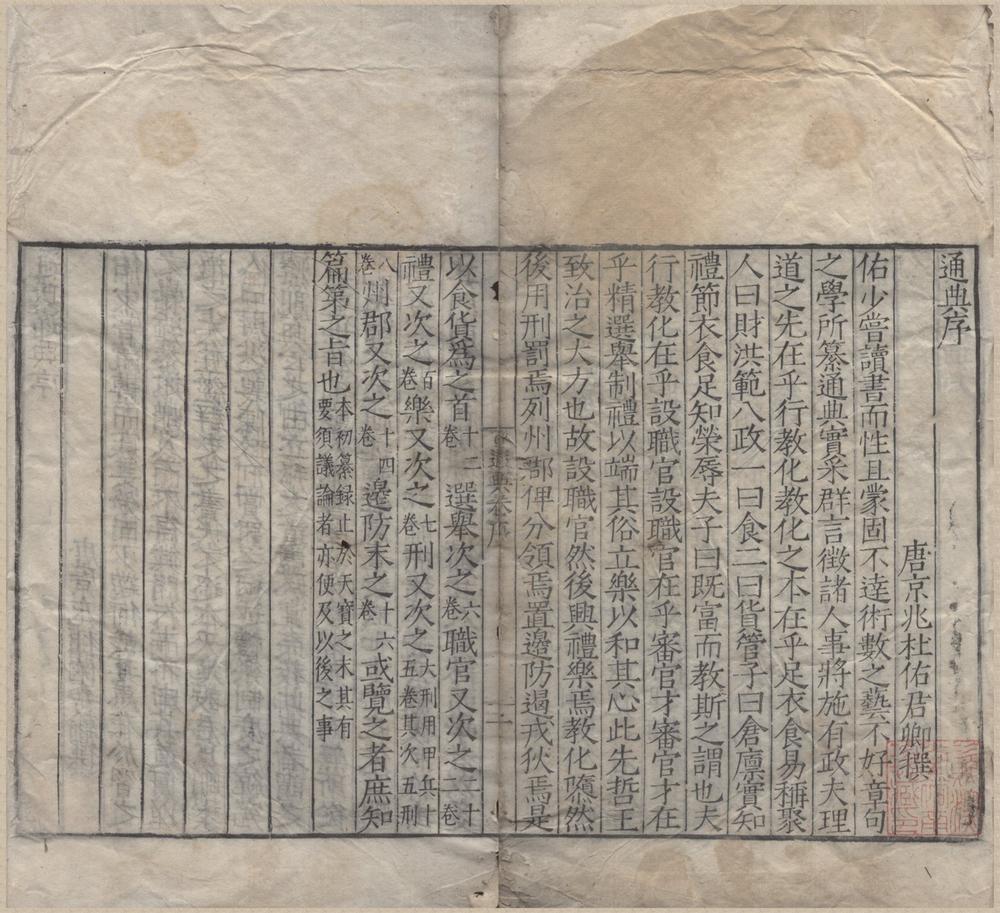 通典序
唐京兆杜佑君卿撰
佑少嘗讀書而性且蒙固不逹術數之藝不好章句
之學所纂通典實采群言徵諸人事將施有政夫理
道之先在乎行教化教化之本在乎足衣食易稱聚
人曰財洪範八政一曰食二曰貨管子曰倉廩實知
禮節衣食足知榮辱夫子曰既富而教斯之謂也夫
行教化在乎設職官設職官在乎審官才審官才在
乎精選舉制禮以端其俗立樂以和其心此先哲王
致治之大方也故設職官然後興禮樂焉教化隳然
後用刑罰焉列州郡俾分領焉置邊防遏戎狄焉是
通典卷序
一
以食貨爲之首十二卷選舉次之六卷職官又次之二十二卷
禮又次之百卷樂又次之七卷刑又次之大刑用甲兵十五卷其次五刑
八卷州郡又次之十四卷邊防末之十六卷或覽之者庶知
篇第之旨也本初纂録止於天寶之末其有
要須議論者亦便及以後之事